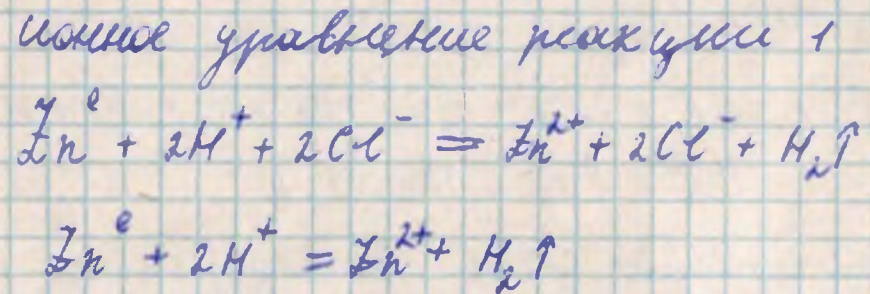 ионное уравнение реакции 1
Zn⁰ + 2H⁺ + 2Cl⁻ = Zn²⁺ + 2Cl⁻ + H₂↑
Zn⁰ + 2H⁺ = Zn²⁺ + H₂↑